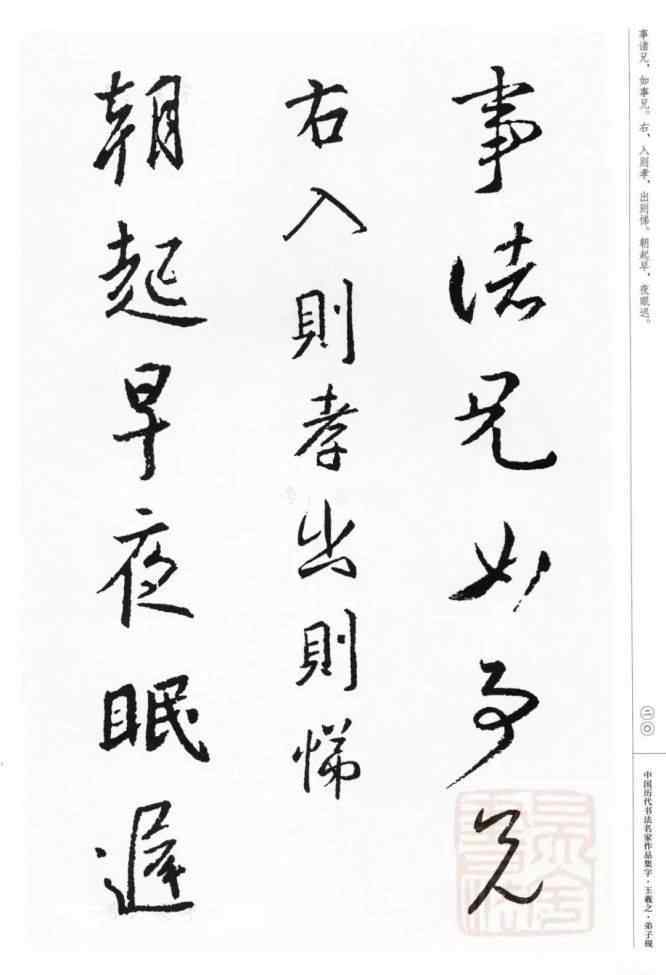 事诸兄，如事兄。右，入则孝，出则悌。朝起早，夜眠迟。
二〇
中国历代书法名家作品集字·王羲之·弟子规
事諸兄如事兄
右入則孝出則悌
朝起早夜眠遲